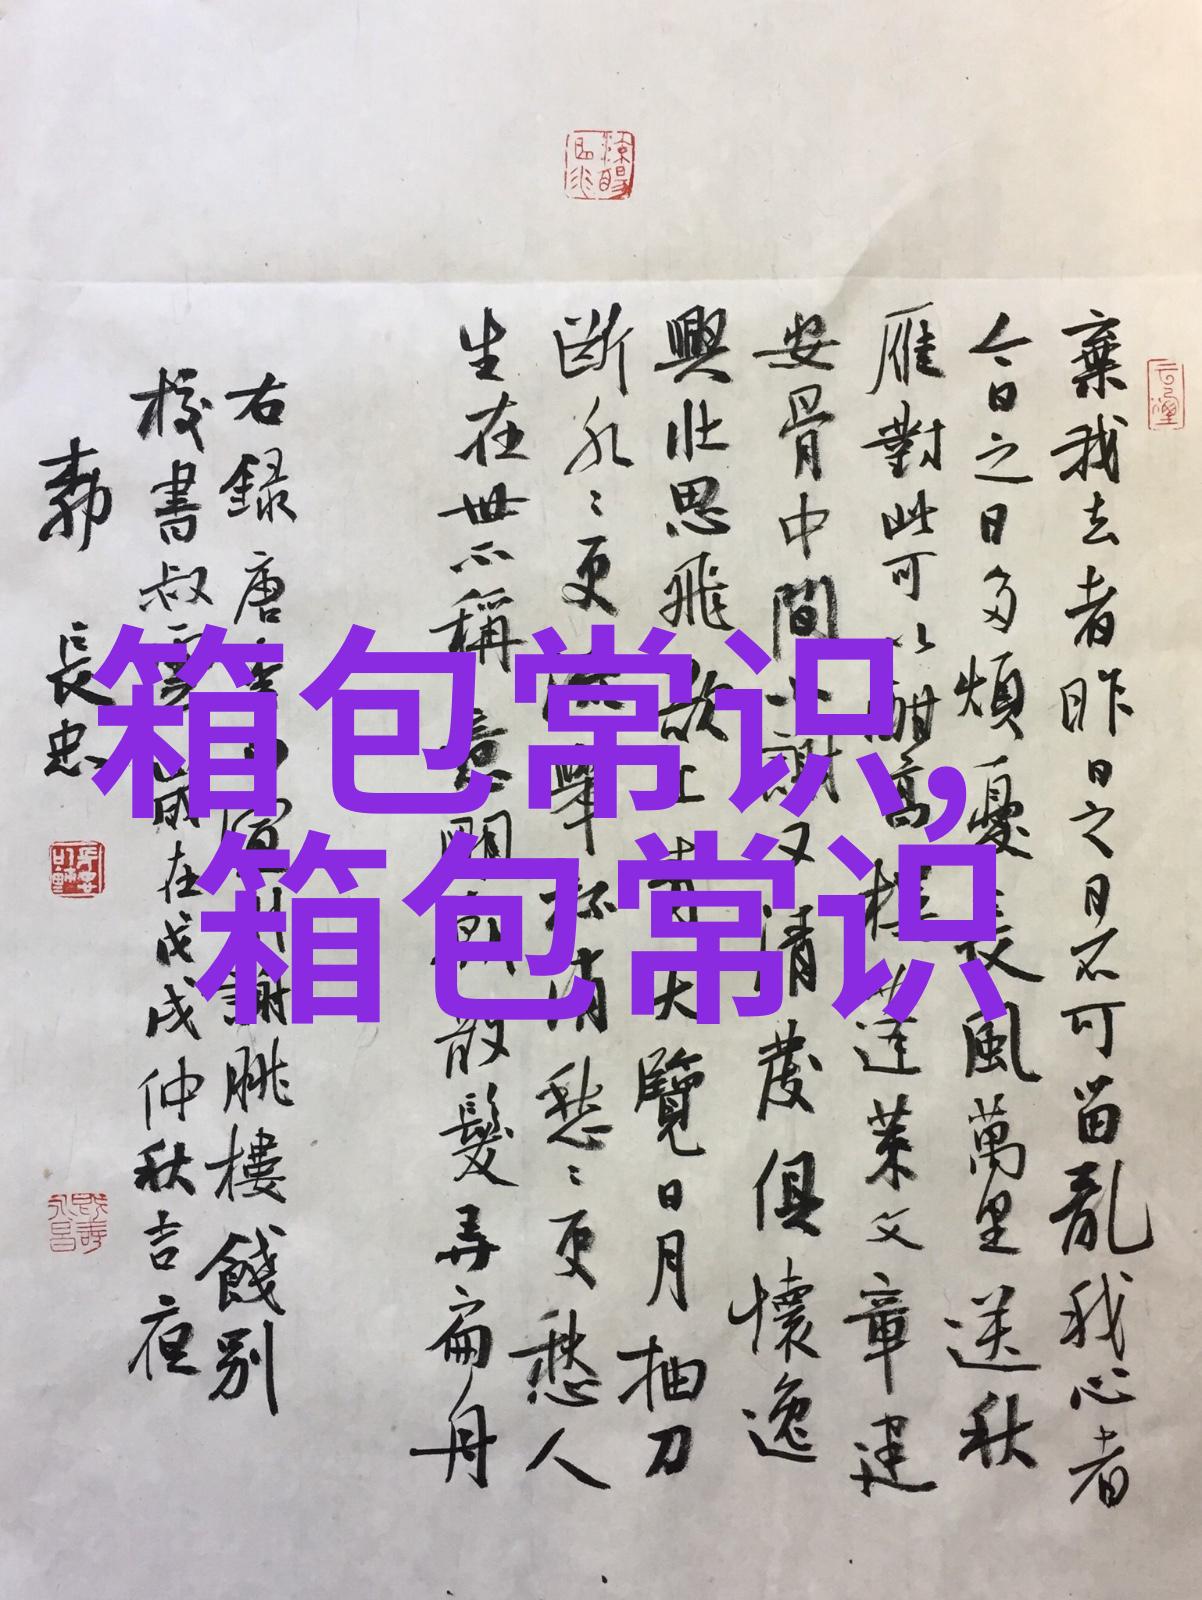 箱包常识,
箱包常识
棄我去者昨日之日不可留亂我心者
今日之日多煩憂長風萬里送秋
雁對此可以酣高樓蓬萊文章建
安骨中間小謝又清發俱懷逸
興壯思飛欲上青天覽日月抽刀
斷水〻更流舉杯消愁〻更愁人
生在世不稱意明朝散髮弄扁舟
右録唐李白宣州謝朓樓餞別
校書叔雲歲在戊戌仲秋吉夜
長忠